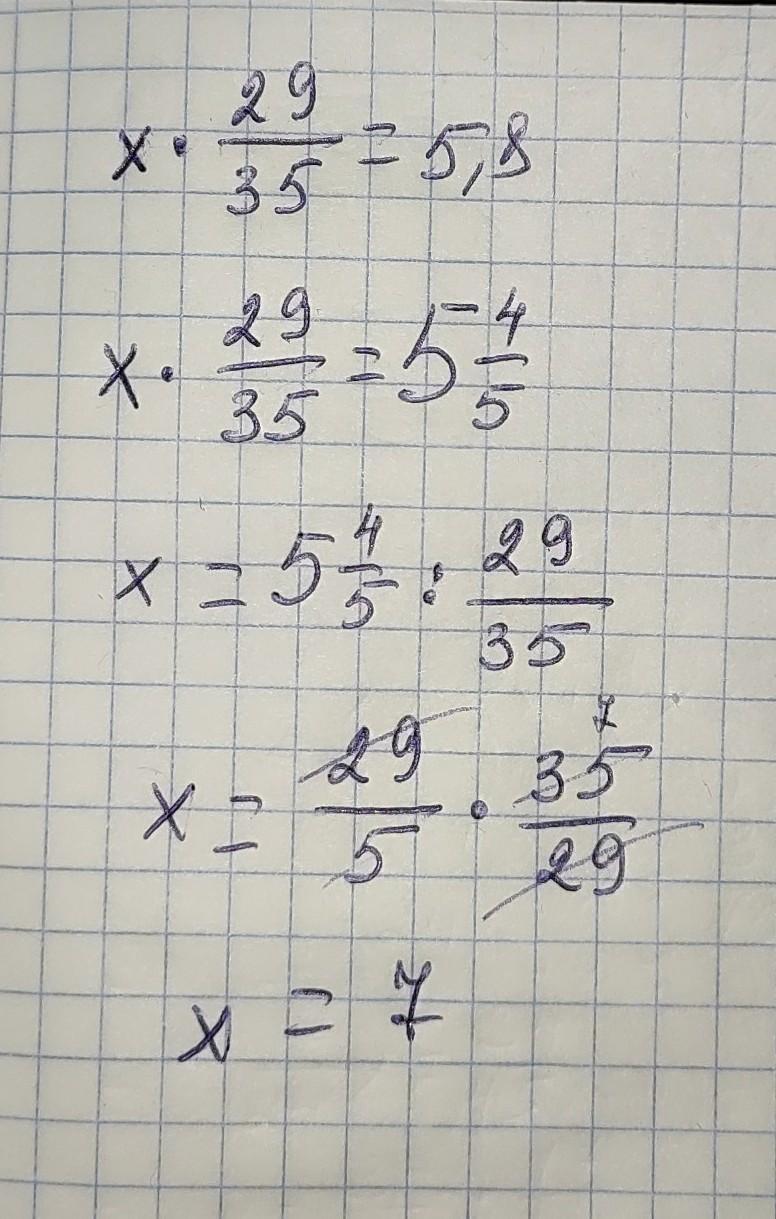 x · 29/35 = 5,8
x · 29/35 = 5 4/5
x = 5 4/5 : 29/35
7
x = 29/5 · 35/29
x = 7